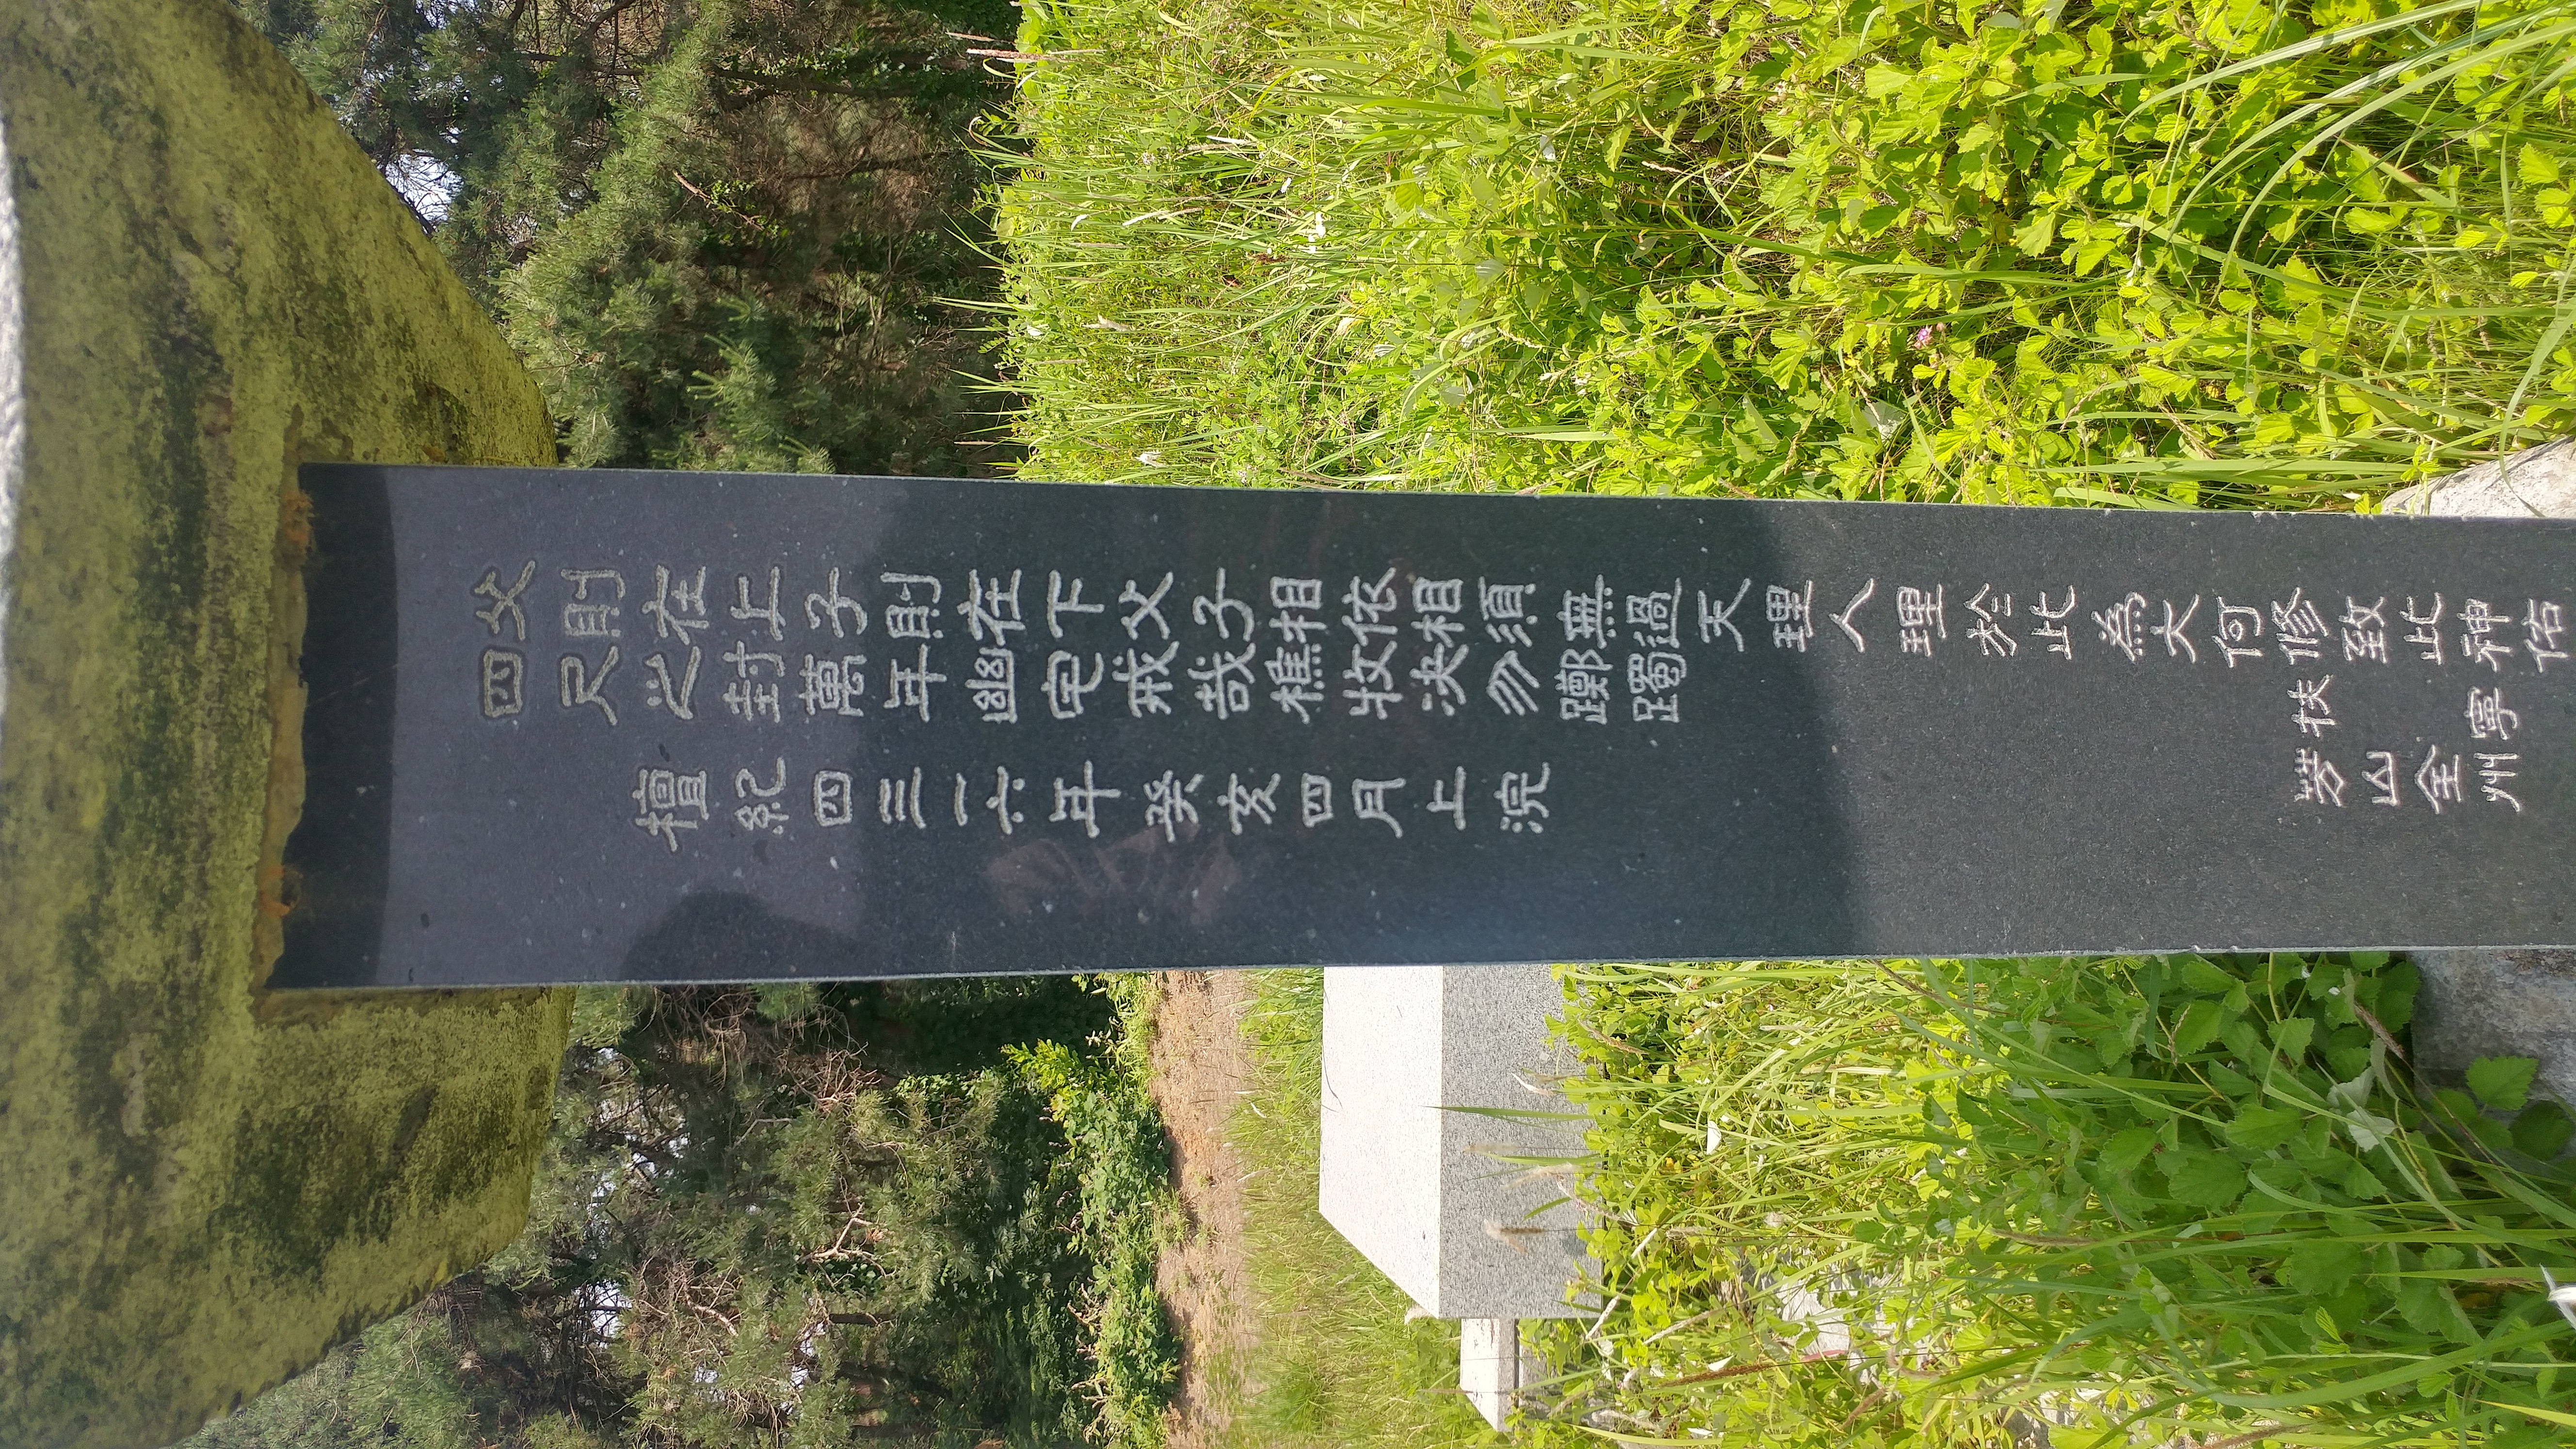 父則在上子則在下父子相依相須無過天理人理於此爲大何修致此神佑
四尺之封萬年幽宅戒哉樵牧決勿躑躅
扶寧
檀紀四三一六年癸亥四月上浣
山全州